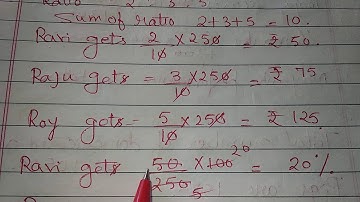 Ratio 2 : 3 : 5
Sum of ratio 2+3+5 = 10.
Ravi gets 2/10 × 250 = ₹ 50.
Raju gets = 3/10 × 250 = ₹ 75
Roy gets = 5/10 × 250 = ₹ 125
Ravi gets 50/250 × 100 = 20%
20
5